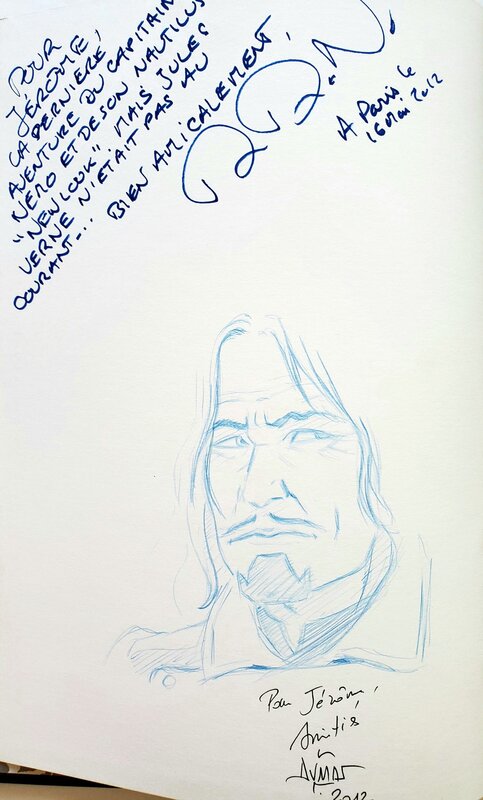 POUR
JÉRÔME,
LA DERNIÈRE
AVENTURE DU CAPITAINE
NEMO ET DE SON NAUTILUS
"NEW LOOK". MAIS JULES
VERNE N'ÉTAIT PAS AU
COURANT... BIEN AMICALEMENT,
A Paris le
16 Mai 2012
Pour Jérôme,
Amitiés
AYMAR
2012